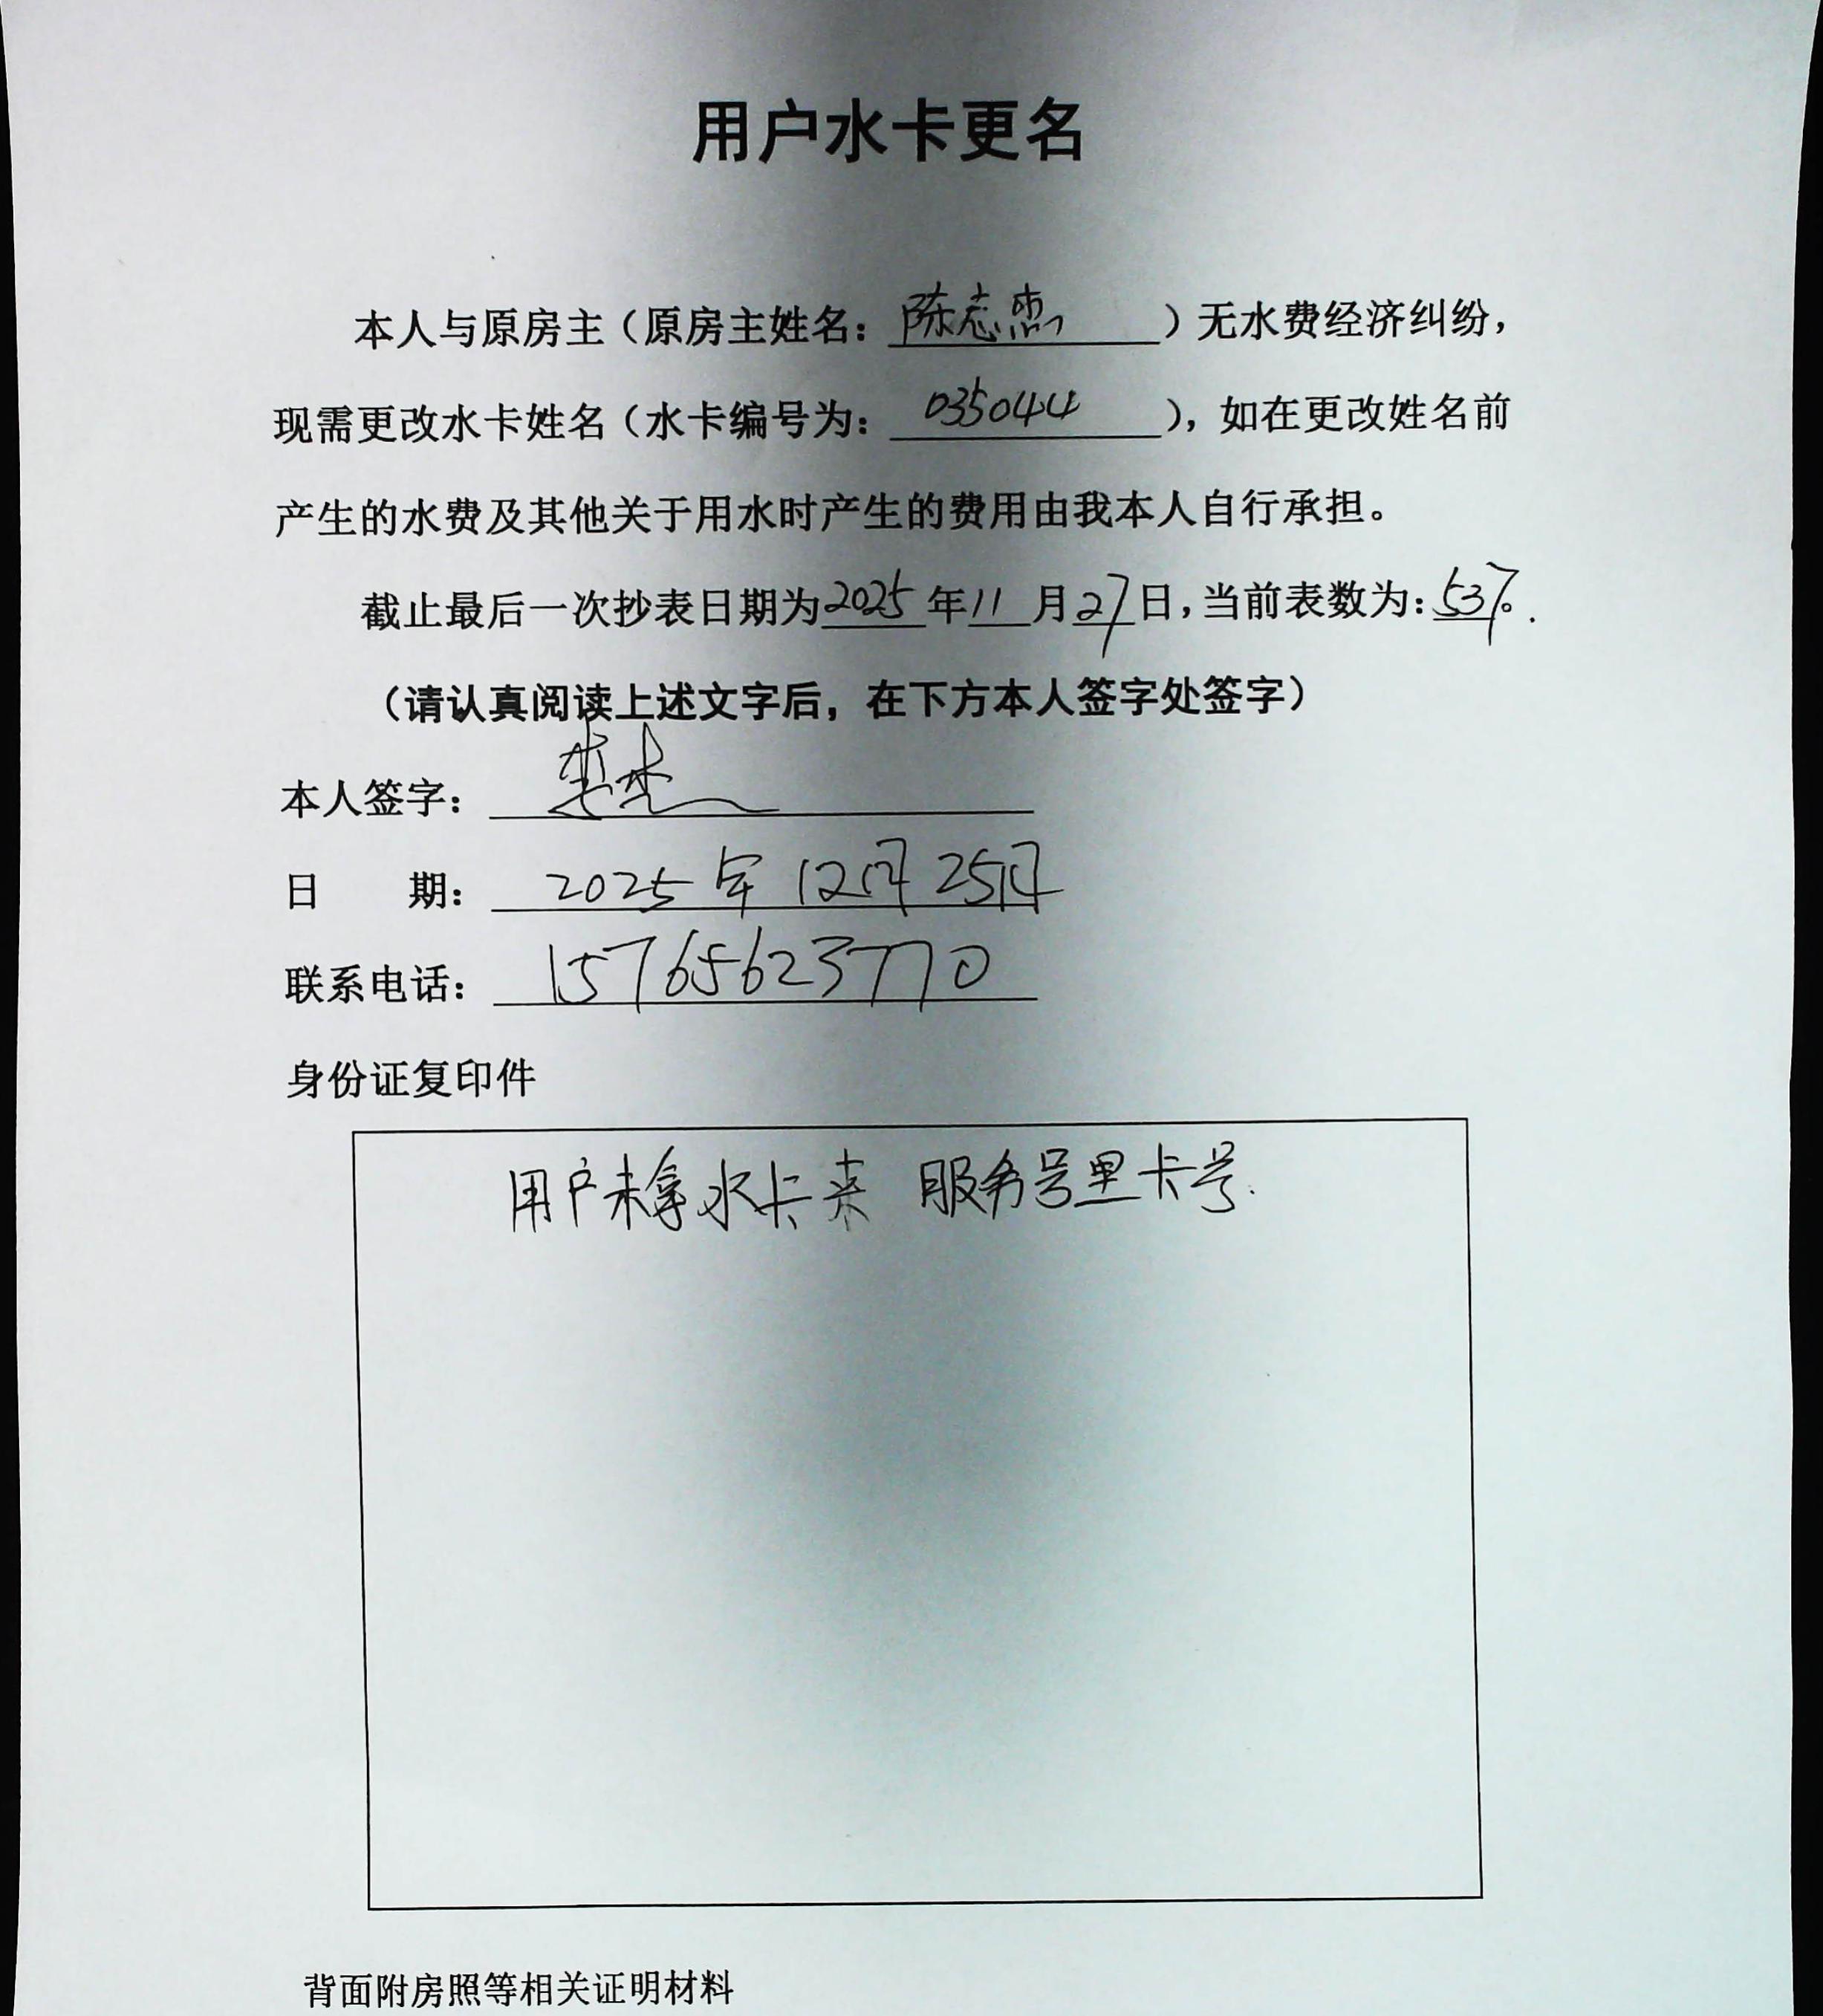 用户水卡更名
本人与原房主（原房主姓名：陈志）无水费经济纠纷，
现需更改水卡姓名（水卡编号为：035044），如在更改姓名前
产生的水费及其他关于用水时产生的费用由我本人自行承担。
截止最后一次抄表日期为2025年11月27日，当前表数为：537。
（请认真阅读上述文字后，在下方本人签字处签字）
本人签字：
日 期：2025年12月25日
联系电话：15765623770
身份证复印件
用户未拿水卡来 服务号里卡号.
背面附房照等相关证明材料